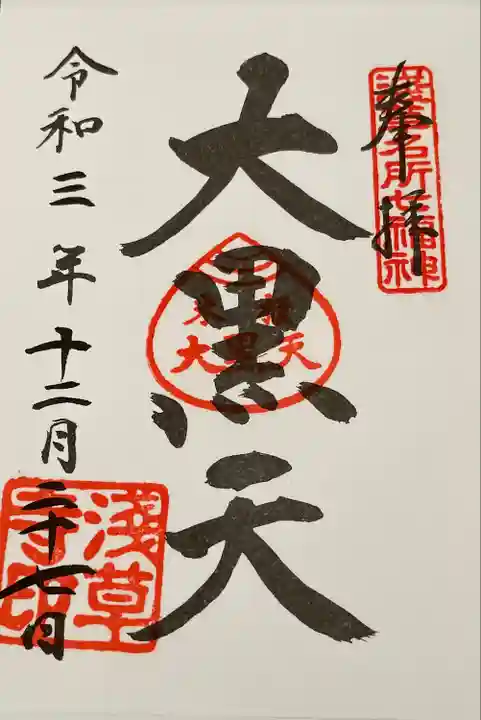 奉拝
浅草名所七福神
大黒天
令和三年十二月二十七日
浅草寺印